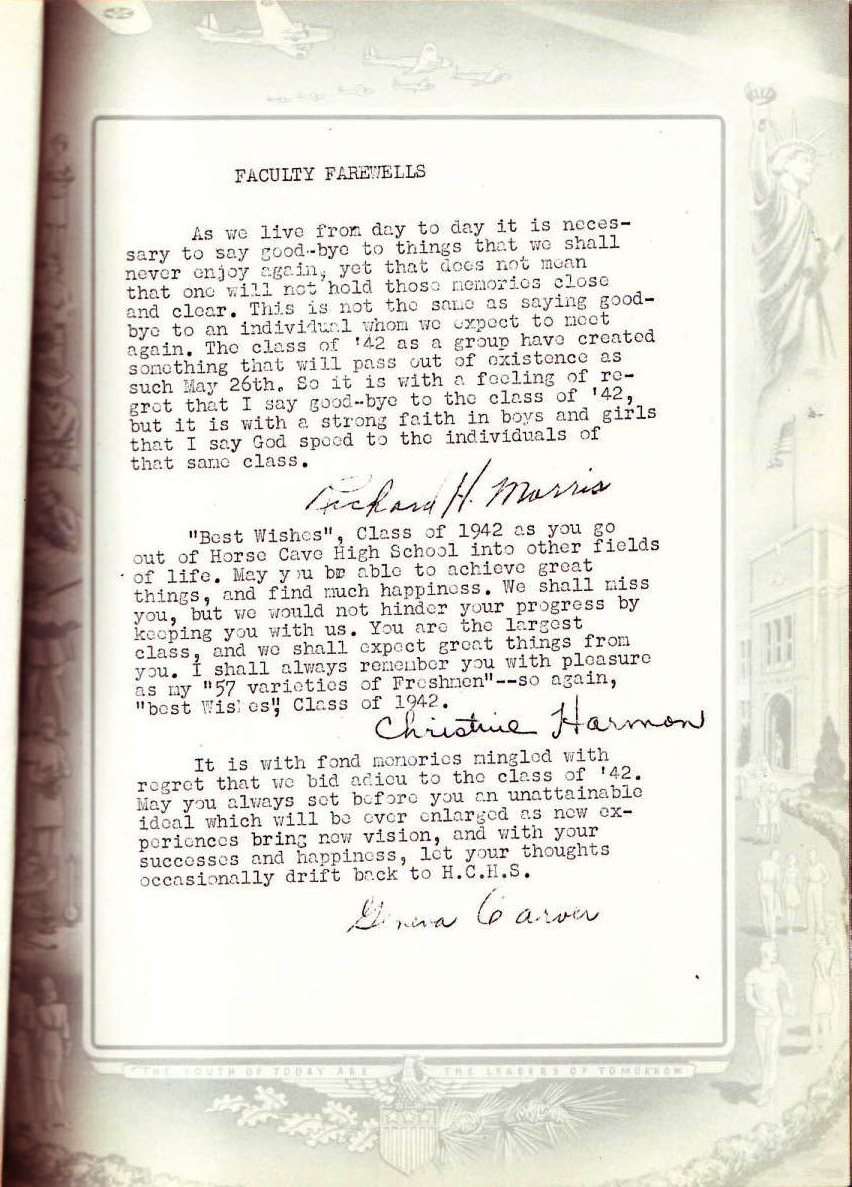 FACULTY FAREWELLS
As we live from day to day it is neces-
sary to say good-bye to things that we shall
never enjoy again, yet that does not mean
that one will not hold those memories close
and clear. This is not the same as saying good-
bye to an individual whom we expect to meet
again. The class of '42 as a group have created
something that will pass out of existence as
such May 26th. So it is with a feeling of re-
gret that I say good-bye to the class of '42,
but it is with a strong faith in boys and girls
that I say God speed to the individuals of
that same class.
Richard H. Morris
"Best Wishes", Class of 1942 as you go
out of Horse Cave High School into other fields
of life. May you be able to achieve great
things, and find much happiness. We shall miss
you, but we would not hinder your progress by
keeping you with us. You are the largest
class, and we shall expect great things from
you. I shall always remember you with pleasure
as my "57 varieties of Freshmen"--so again,
"best Wishes", Class of 1942.
Christine Harmon
It is with fond memories mingled with
regret that we bid adieu to the class of '42.
May you always set before you an unattainable
ideal which will be ever enlarged as new ex-
periences bring new vision, and with your
successes and happiness, let your thoughts
occasionally drift back to H.C.H.S.
Geneva Carver
THE YOUTH OF TODAY ARE THE LEADERS OF TOMORROW